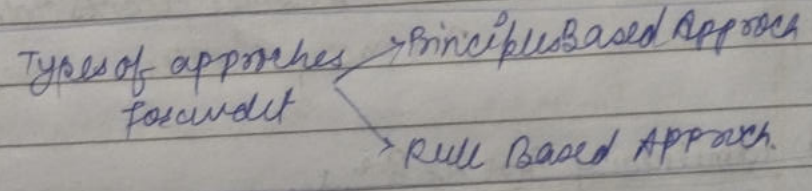 Types of approches
for audit
→ Principles Based Approch
→ Rule Based Approch.